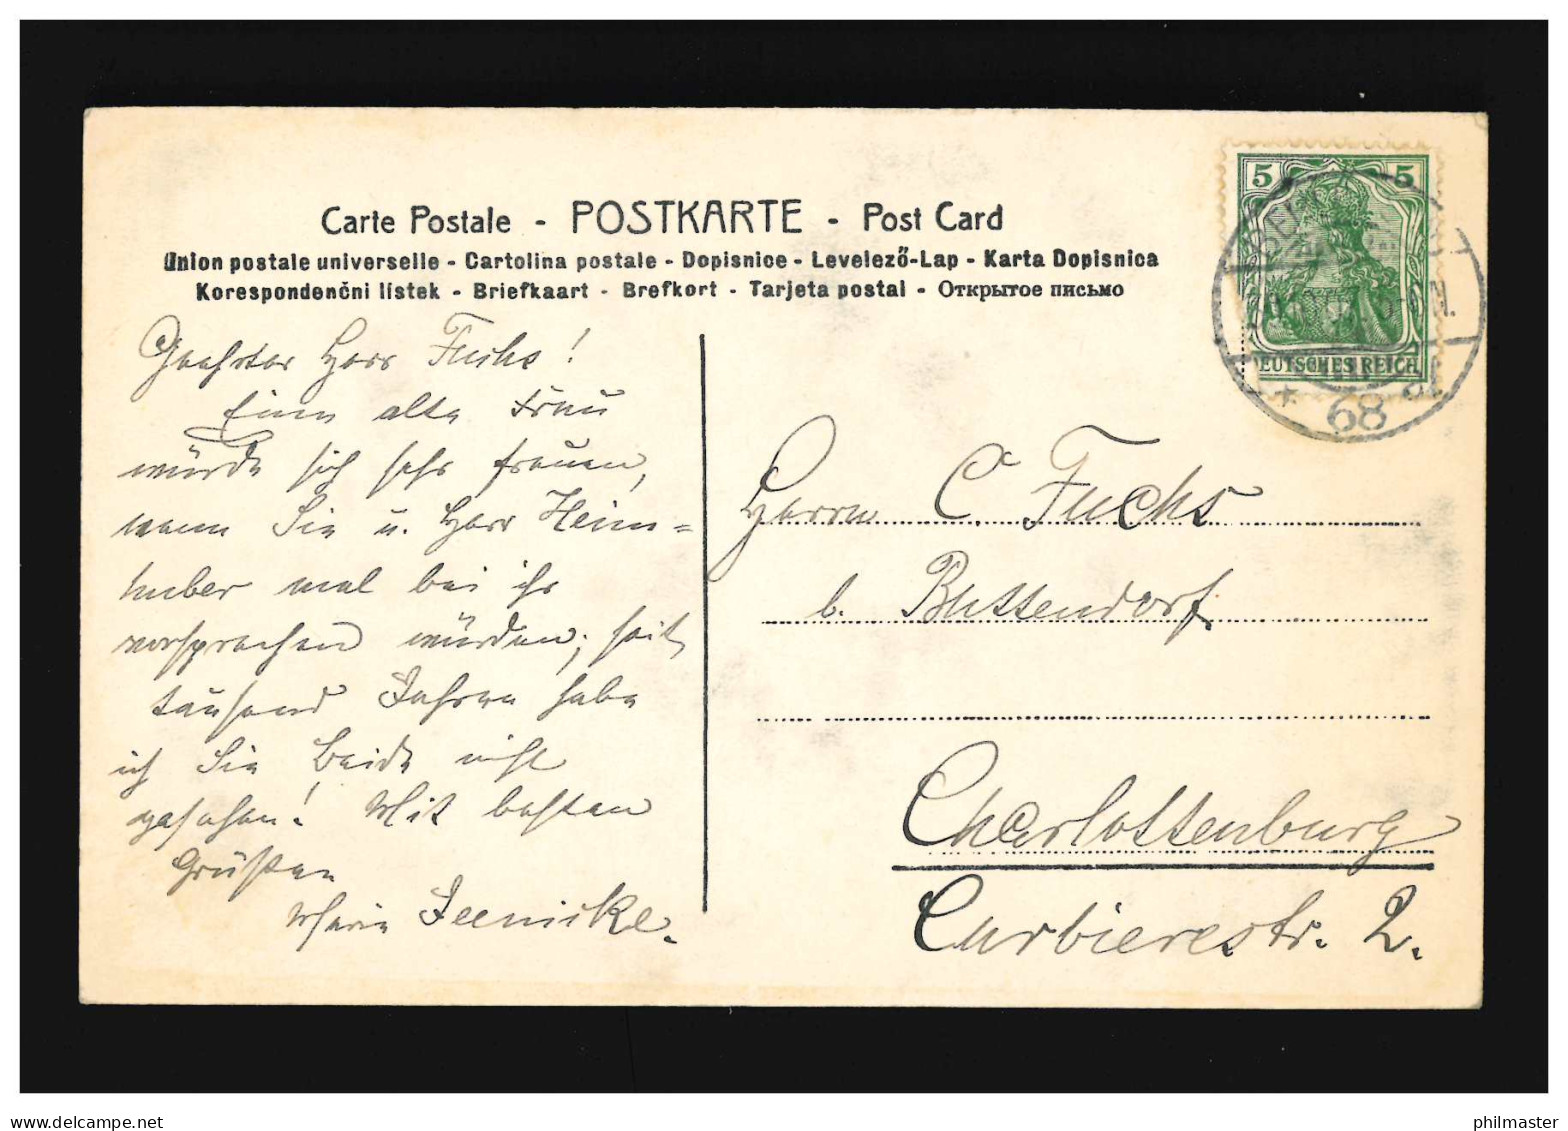 Carte Postale - POSTKARTE - Post Card
Union postale universelle - Cartolina postale - Dopisnice - Levelező-Lap - Karta Dopisnica
Korespondenčni listek - Briefkaart - Brefkort - Tarjeta postal - Открытое письмо
5 5
DEUTSCHES REICH
68
Geehrter Herr Fuchs!
Eine alte Frau
würde sich sehr freuen,
wenn Sie u. Herr Heim=
huber mal bei ihr
vorsprechen würden; seit
tausend Jahren habe
ich Sie Beide nicht
gesehen! Mit besten
Grüßen
Marie Jeenicke.
Herrn C. Fuchs
b. Buttendorf
Charlottenburg
Curbierestr. 2.
https://www.delcampe.net
philmaster